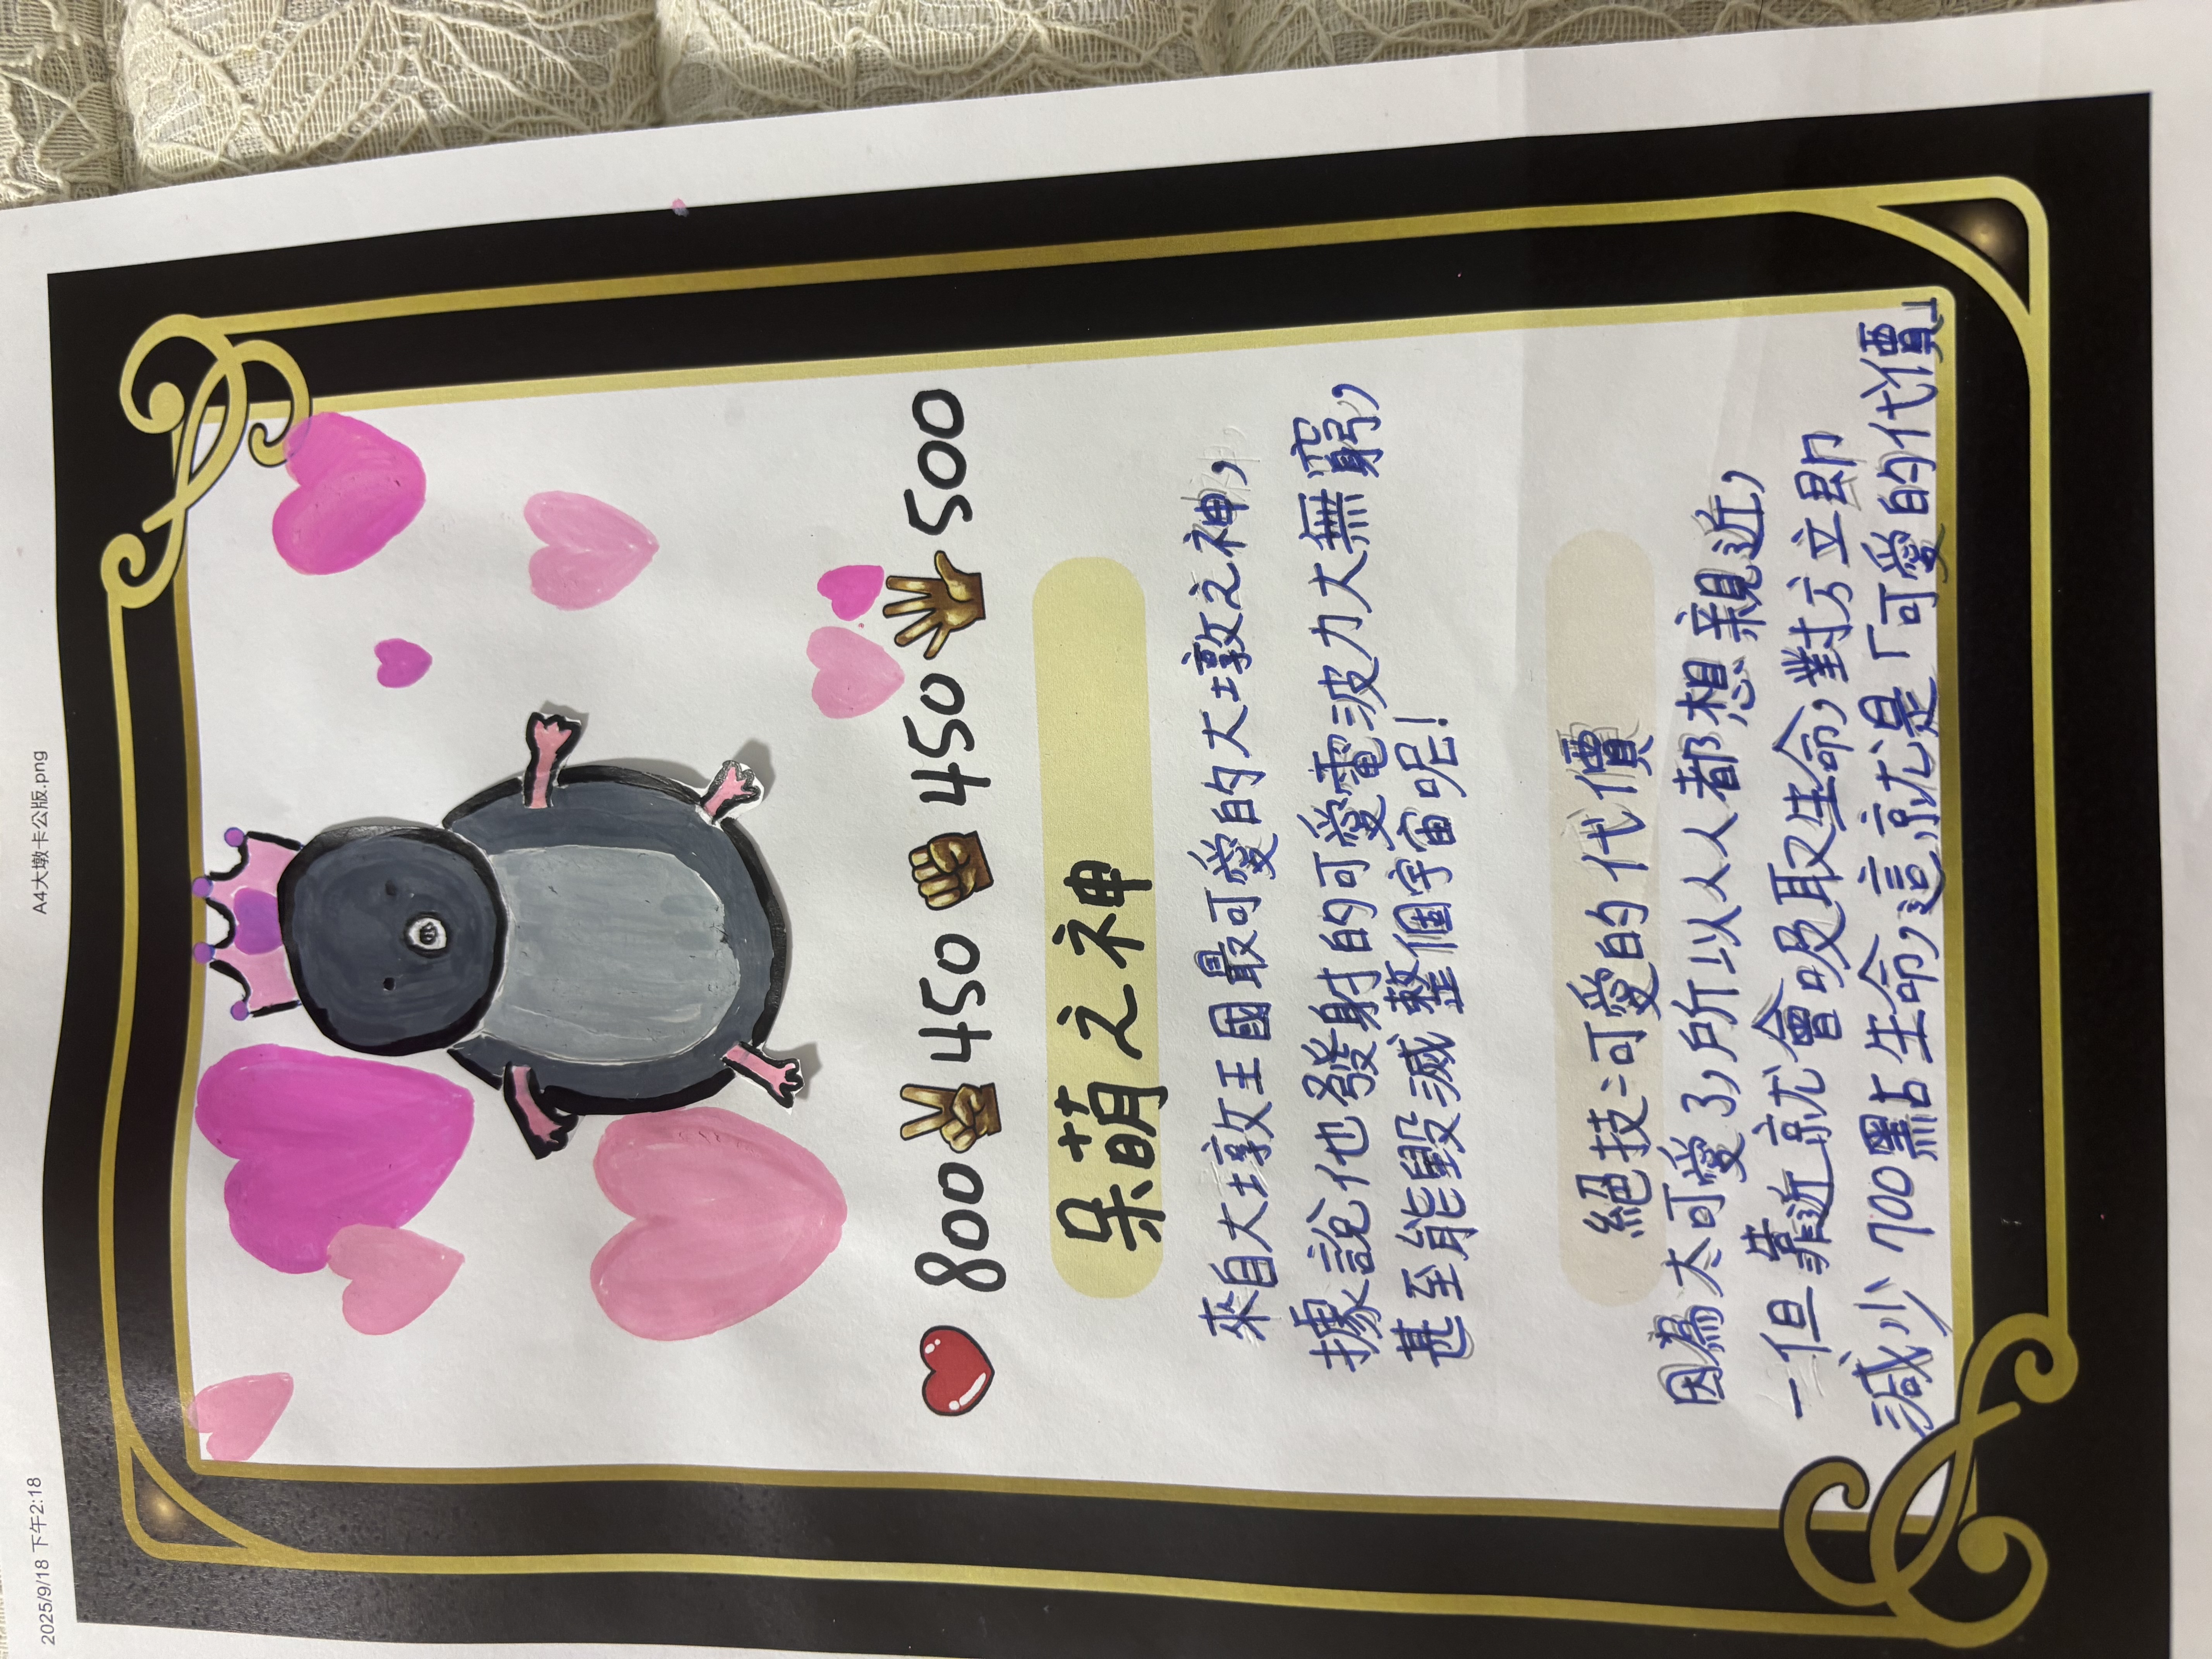 2025/9/18 下午2:18
A4大墩卡公版.png
800 450 450 500
呆萌之神
來自大墩王國最可愛的大墩之神，
據說他發射的可愛電波力大無窮，
甚至能毀滅整個宇宙呢！
絕技：可愛的代價
因為太可愛了，所以人人都想親近，
一但靠近就會吸取生命，對方立即
減少700點生命，這就是「可愛的代價」